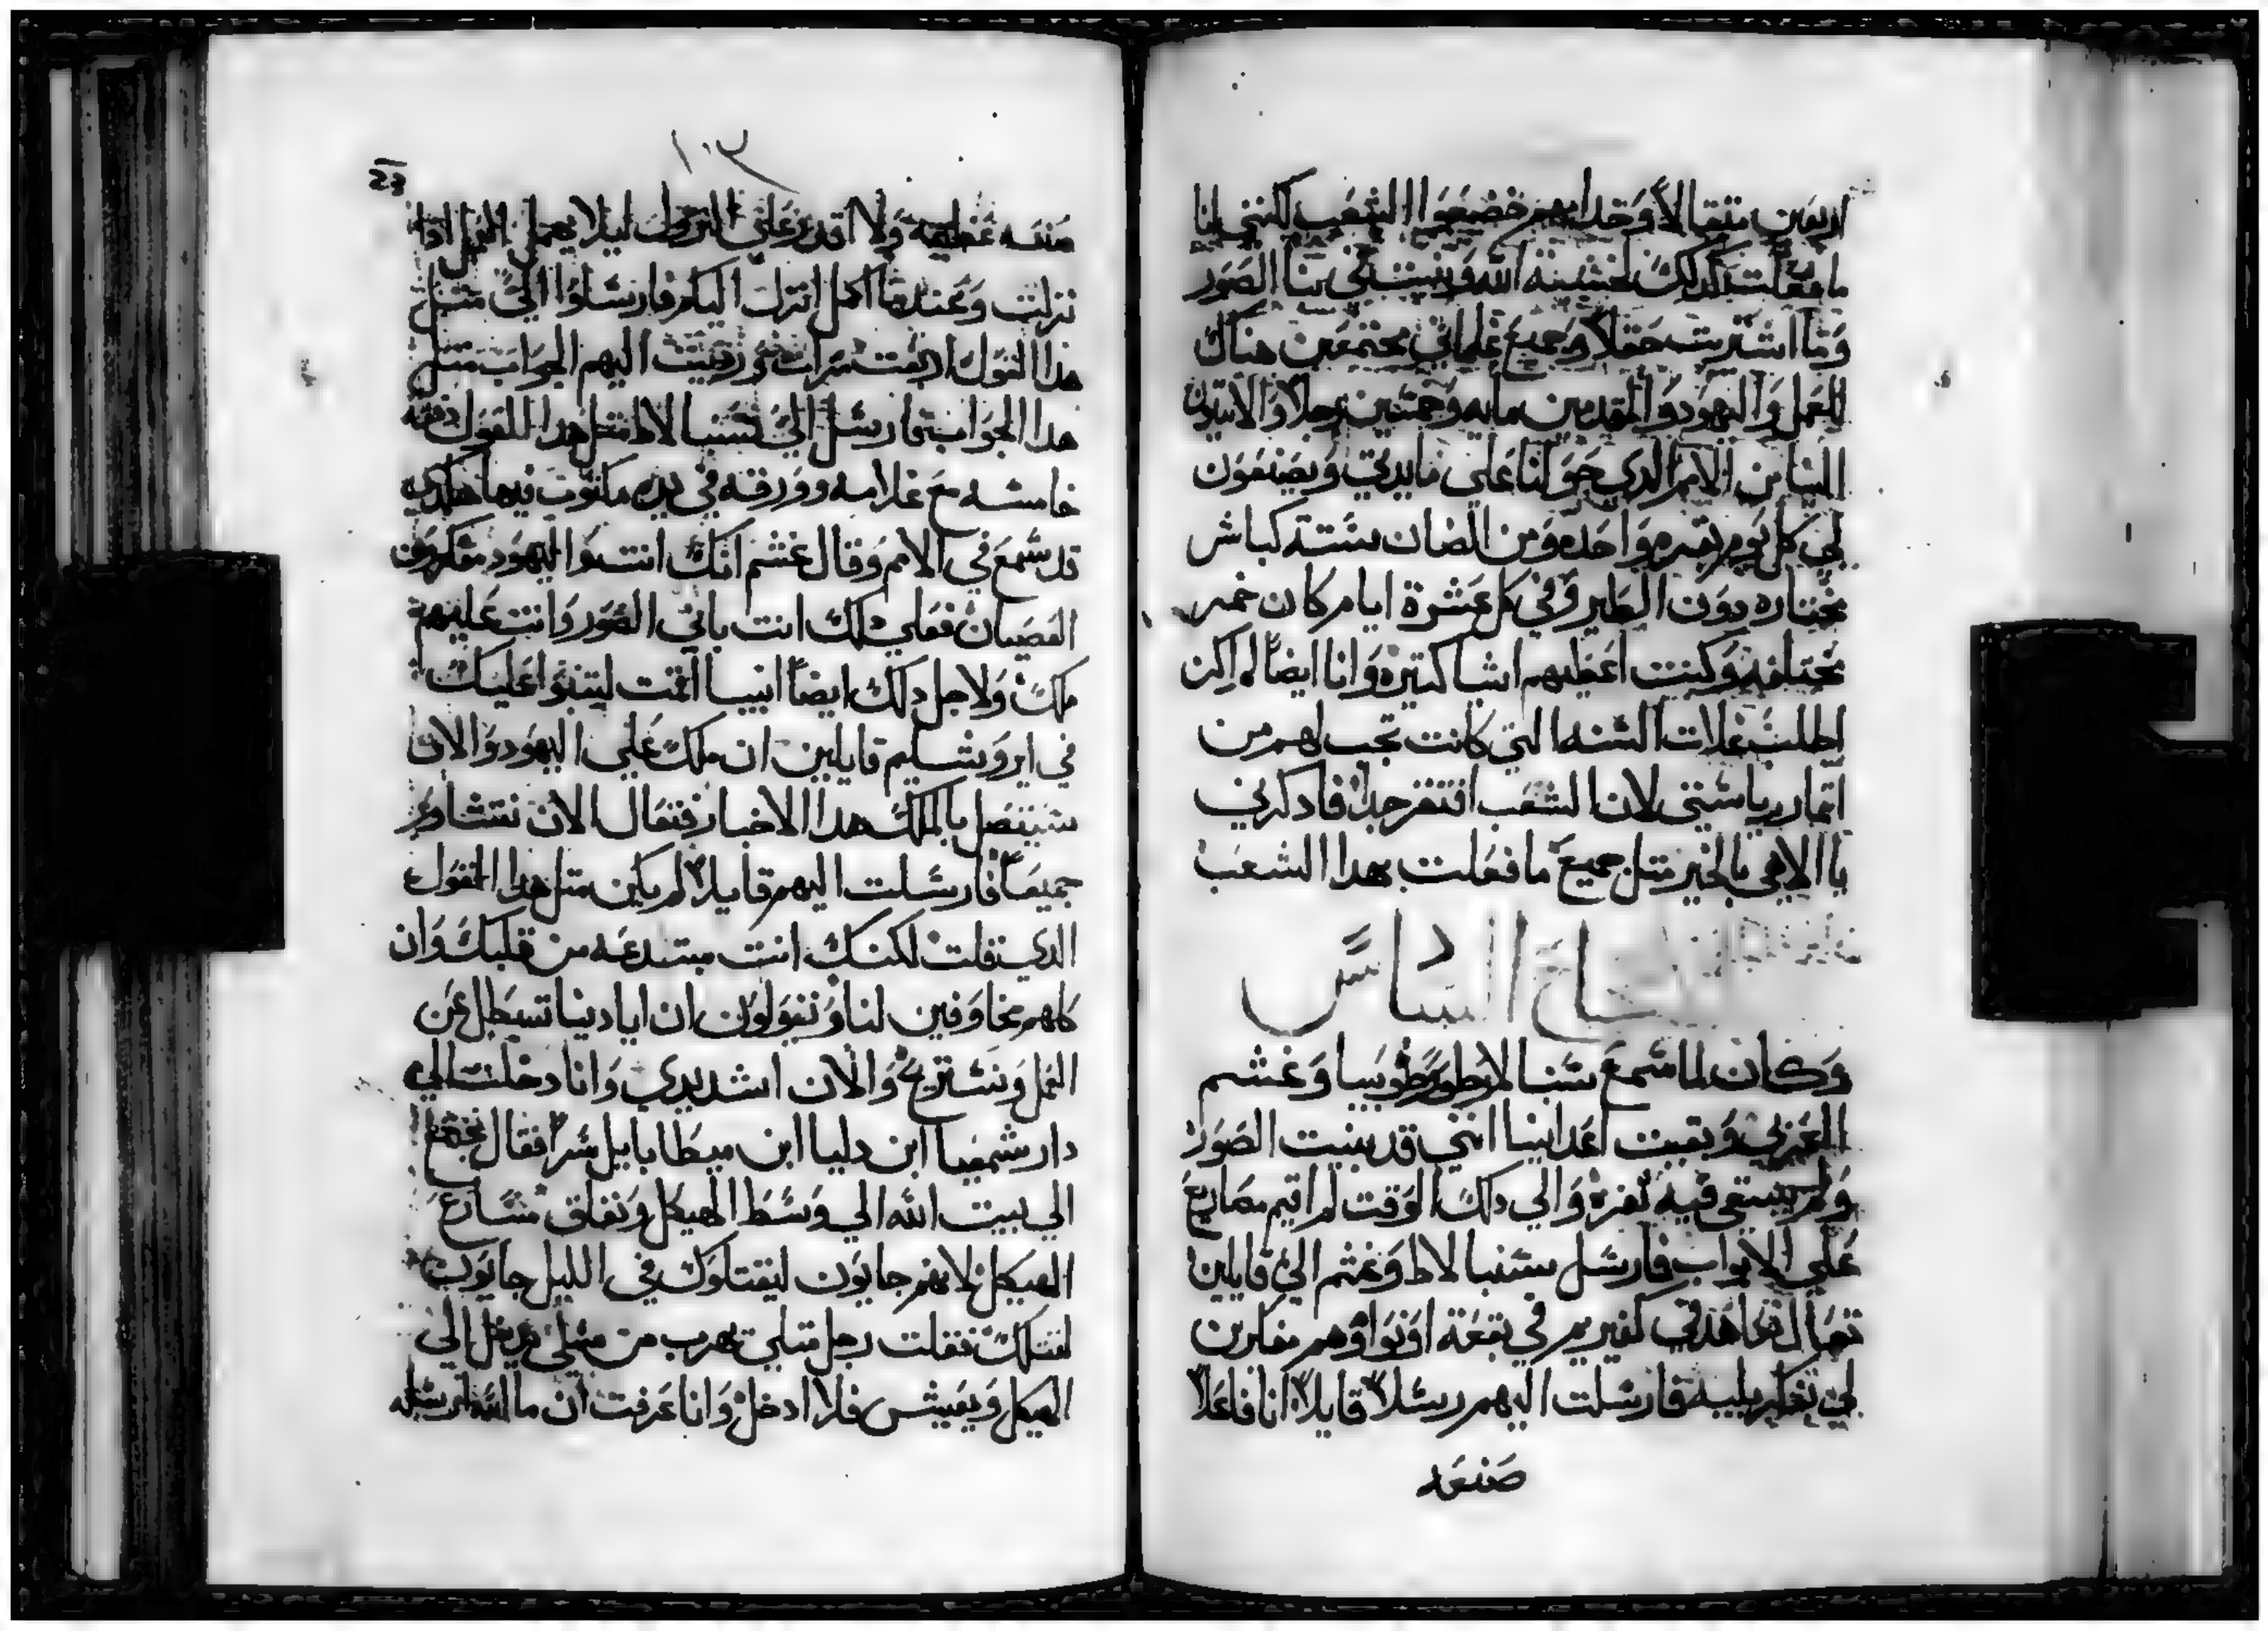 اربعين متقالاً وحداتهم خضعوا الشعب لكنني انا
ما فعلت كدلك لخشية الله وبنيت في بنا الصور
وما اشتريت حقلا وجميع غلماني مجتمعين هناك
للعمل واليهود والمقدمين مايه وخمسين رجلا والاتيين
الينا من الامم الدي حولنا علي مايدتي ويصنعون
لي كل يوم بقره واحده ومن الضان ستة كباش
مختاره دون الطير وفي كل عشرة ايام كان خمر
مختلفه وكنت اعطيهم اشيا كتيره وانا ايضاً لم اكن
اطلب غلات السنه التي كانت تجب لهم من
اتمار رياستي لان الشعب افتقر جداً فادكرني
يا الاهي بالخير متل جميع ما فعلت بهدا الشعب
الاصحاح السادس
وكان لما سمع سنبا لاط وطوبيا وغشم
العربي وبقيت اعداينا انني قد بنيت الصور
ولم يبقي فيه تغره والي دلك الوقت لم اقيم مصاريع
علي الابواب فارسل سنبا لاط وغشم الي قايلين
تعال نتعاهد في كفيريم في بقعة اونوا وهم مفكرين
لي تفكير بليه فارسلت اليهم رسلاً قايلاً انا فاعلاً
صنعه
١٠٣
صنعه عظيمة ولا اقدر علي النزول ليلا يهمل العمل ادا
نزلت وعندما اكمل انزل اليكم فارسلوا الي متل
هدا القول اربعت مرات ورديت اليهم الجواب متل
هدا الجواب فارسل الي سنبا لاط متل هدا القول دفعه
خامسه مع غلامه وورقه في يده مكتوب فيها هكدي
قد سمع في الامم وقال غشم انك انت واليهود مفكرين
العصيان فعلي دلك انت باني الصور وانت عليهم
ملك ولاجل دلك ايضاً انبيا اقمت ليتنبوا عليك
في ايروشليم قايلين ان ملك علي اليهود والان
سيتصل بالملك هدا الاخبار فتعال الان نتشاور
جميعاً فارسلت اليهم قايلاً لم يكن متل هدا القول
الدي تقلت لكنك انت مبتدعه من قلبك وان
كلهم مخاوفين لنا وتقولون ان ايادينا تبطل عن
العمل ونستريح والان اشد يدي وانا دخلت الي
دار شمعيا ابن دليا ابن ميطابابيل سراً فقال نجتمع
الي بيت الله الي وسط الهيكل ونغلق مشارع
الهيكل لانهم جايون ليقتلوك في الليل جايون
لقتلك فقلت رجل متلي يهرب من متلي يدخل الي
الهيكل ويعيش فلا ادخل وانا عرفت ان ما الله ارسله